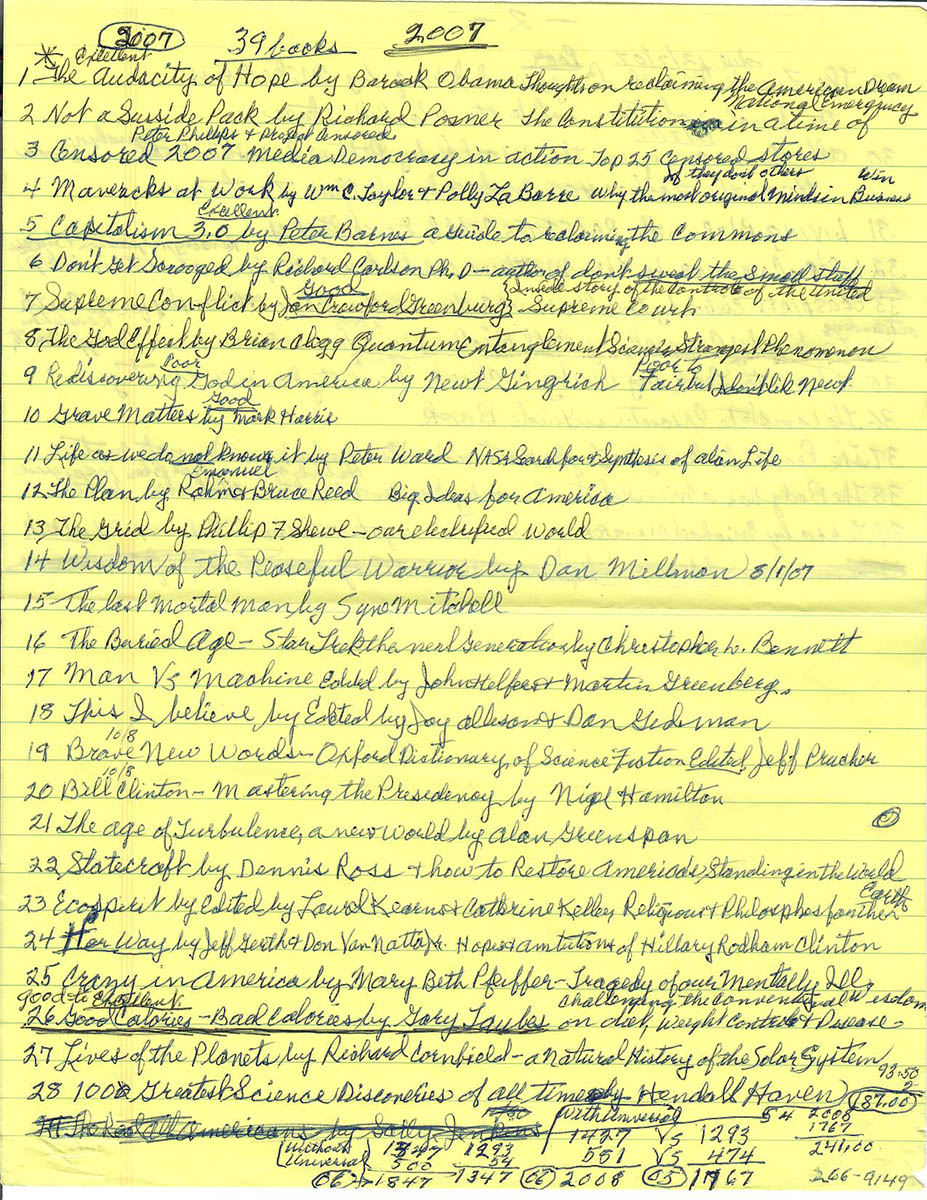 2007 39 books 2007
* Excellent
1 The Audacity of Hope by Barack Obama Thoughts on reclaiming the American Dream
National Emergency
2 Not a Suside Pack by Richard Posner The Constitution in a time of
Peter Phillips & Project Censored
3 Censored 2007 Media Democracy in action Top 25 Censored stores
if they dont others win
4 Mavericks at Work by Wm C. Taylor & Polly LaBarre Why the most original minds in Business
Excellent
5 Capitalism 3.0 by Peter Barnes a Guide to reclaiming the Commons
6 Don't Get Scrooged by Richard Carlson Ph.D - author of dont sweat the small stuff
Good {Inside story of the control of the United
7 Supreme Conflict by Jan Crawford Greenburg} Supreme Court
8 The God Effect by Brian Clegg Quantum Entanglement Science Strangest Phenomenon
Poor Poor to
9 Rediscovering God in America by Newt Gingrich Fair but I don't lik Newt
Good
10 Grave Matters by Mark Harris
11 Life as we do not know it by Peter Ward NASA Search for & Synthesis of alien Life
Emanuel
12 The Plan by Rahm & Bruce Reed Big Ideas for America
13 The Grid by Phillip F Shewe - our electrified World
14 Wisdom of the Peaseful Warrior by Dan Millman 8/1/07
15 The last Mortal Man by Syne Mitchell
16 The Buried Age - Star Trek the next Generation by Christopher L. Bennett
17 Man Vs Machine Edited by John Helfers & Martin Greenberg.
18 This I believe by Edited by Jay allison & Dan Gediman
10/8
19 Brave New Words - Oxford Dictionary of Science Fiction Edited Jeff Prucher
10/8
20 Bill Clinton - Mastering the Presidency by Nigel Hamilton
21 The age of Turbulence, a new World by Alan Greenspan
22 Statecraft by Dennis Ross & how to Restore America's Standing in the World
Earth
23 Ecospirit by Edited by Laurel Kearns & Catherine Keller Religious & Philosphes for the
24 Her Way by Jeff Gerth & Don Van Natta Jr. Hopes & ambitions of Hillary Rodham Clinton
25 Crazy in America by Mary Beth Pfeiffer - Tragedy of our Mentally Ill
good to Excellent challenging the conventional Wisdom
26 Good Calories - Bad Calories by Gary Taubes on diet, Weight Control & Disease
27 Lives of the Planets by Richard Cornfield - a Natural History of the Solar System
93.50
28 100 Greatest Science Discoveries of all time by Kendall Haven
2
187.00
The Real all Americans by Sally Jenkins
With Universal 54 2008
1427 Vs 1293 1767
581 Vs 474 241.00
06 2008 05 1767
Without 1347 1293
Universal 500 54
06 1847 1347
266-9149